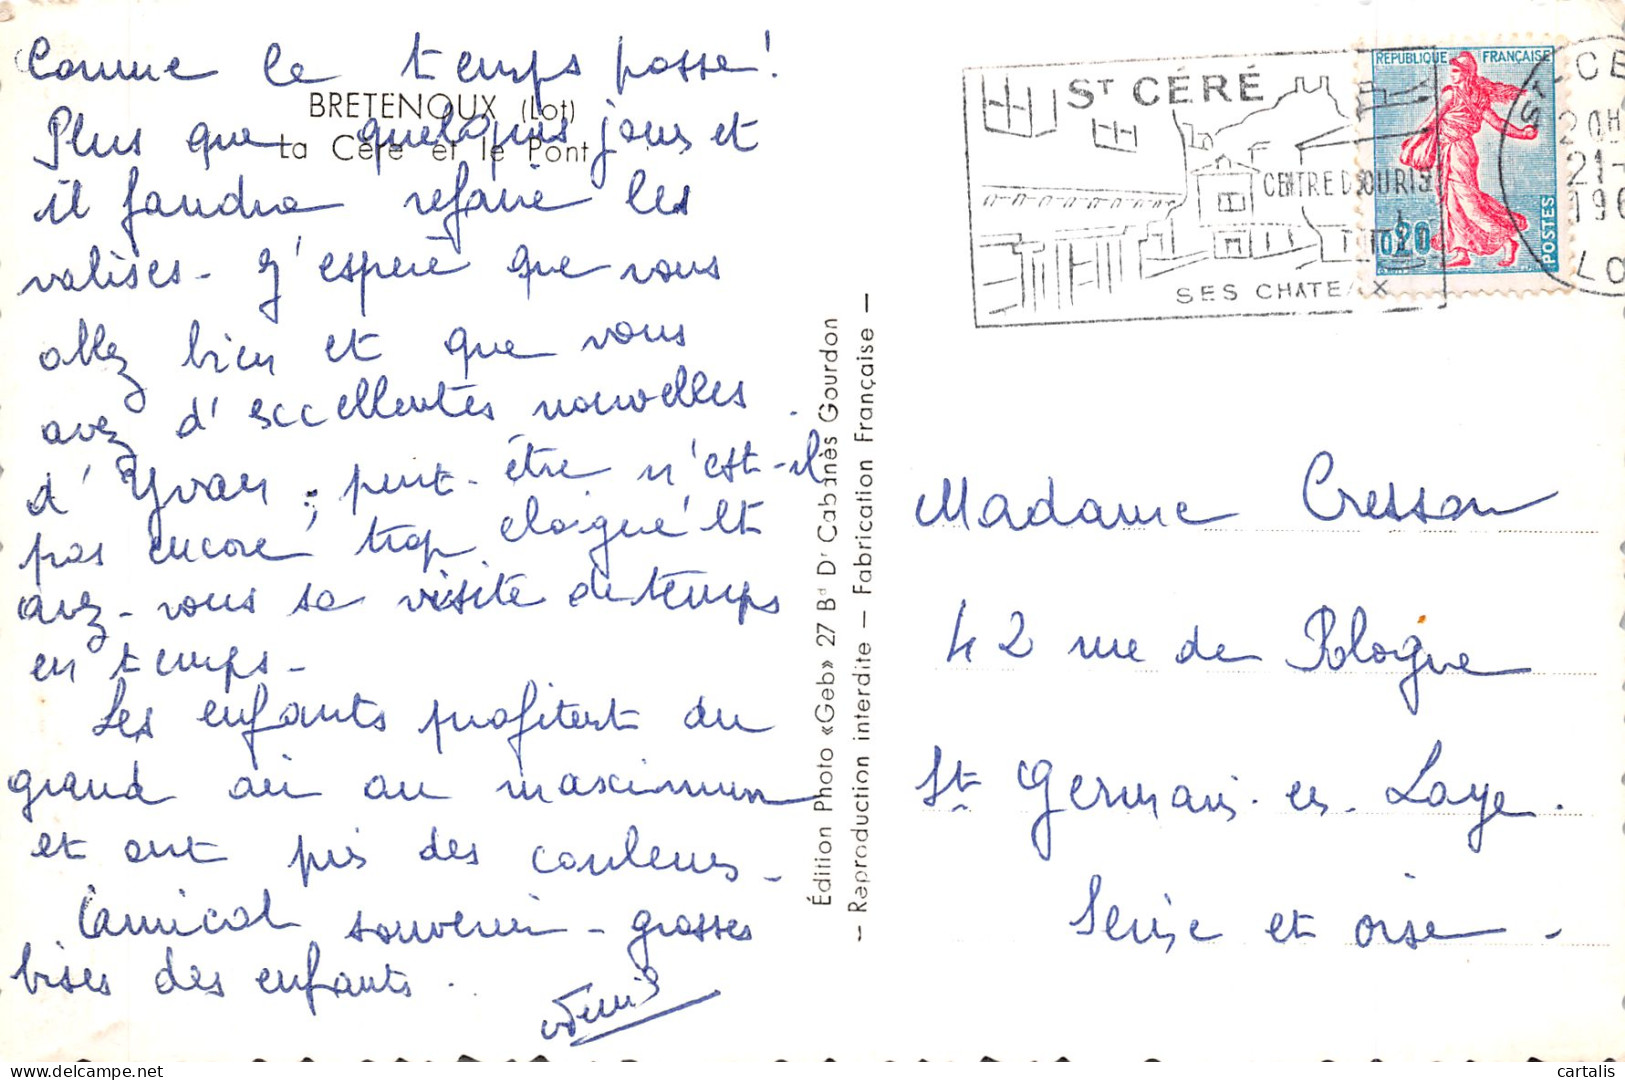 Comme le temps passe !
BRETENOUX (Lot)
Plus que quelques jours et
La Cère et le Pont
il faudra refaire les
valises - J'espère que vous
allez bien et que vous
avez d'excellentes nouvelles
d'Yvan, peut-être n'est-il
pas encore trop éloigné et
avez-vous sa visite de temps
en temps -
Les enfants profitent du
grand air au maximum
et ont pris des couleurs -
Amical souvenir - grosses
bises des enfants.
Édition Photo «Geb» 27 Bd Dr Cabanès Gourdon
— Reproduction interdite — Fabrication Française —
ST CÉRÉ
SES CHATEAUX
RÉPUBLIQUE FRANÇAISE
0,20
POSTES
ST-CE
20H
21-
196
LO
Madame Cresson
42 rue de Pologne
St Germain-en-Laye.
Seine et oise -
cartalis